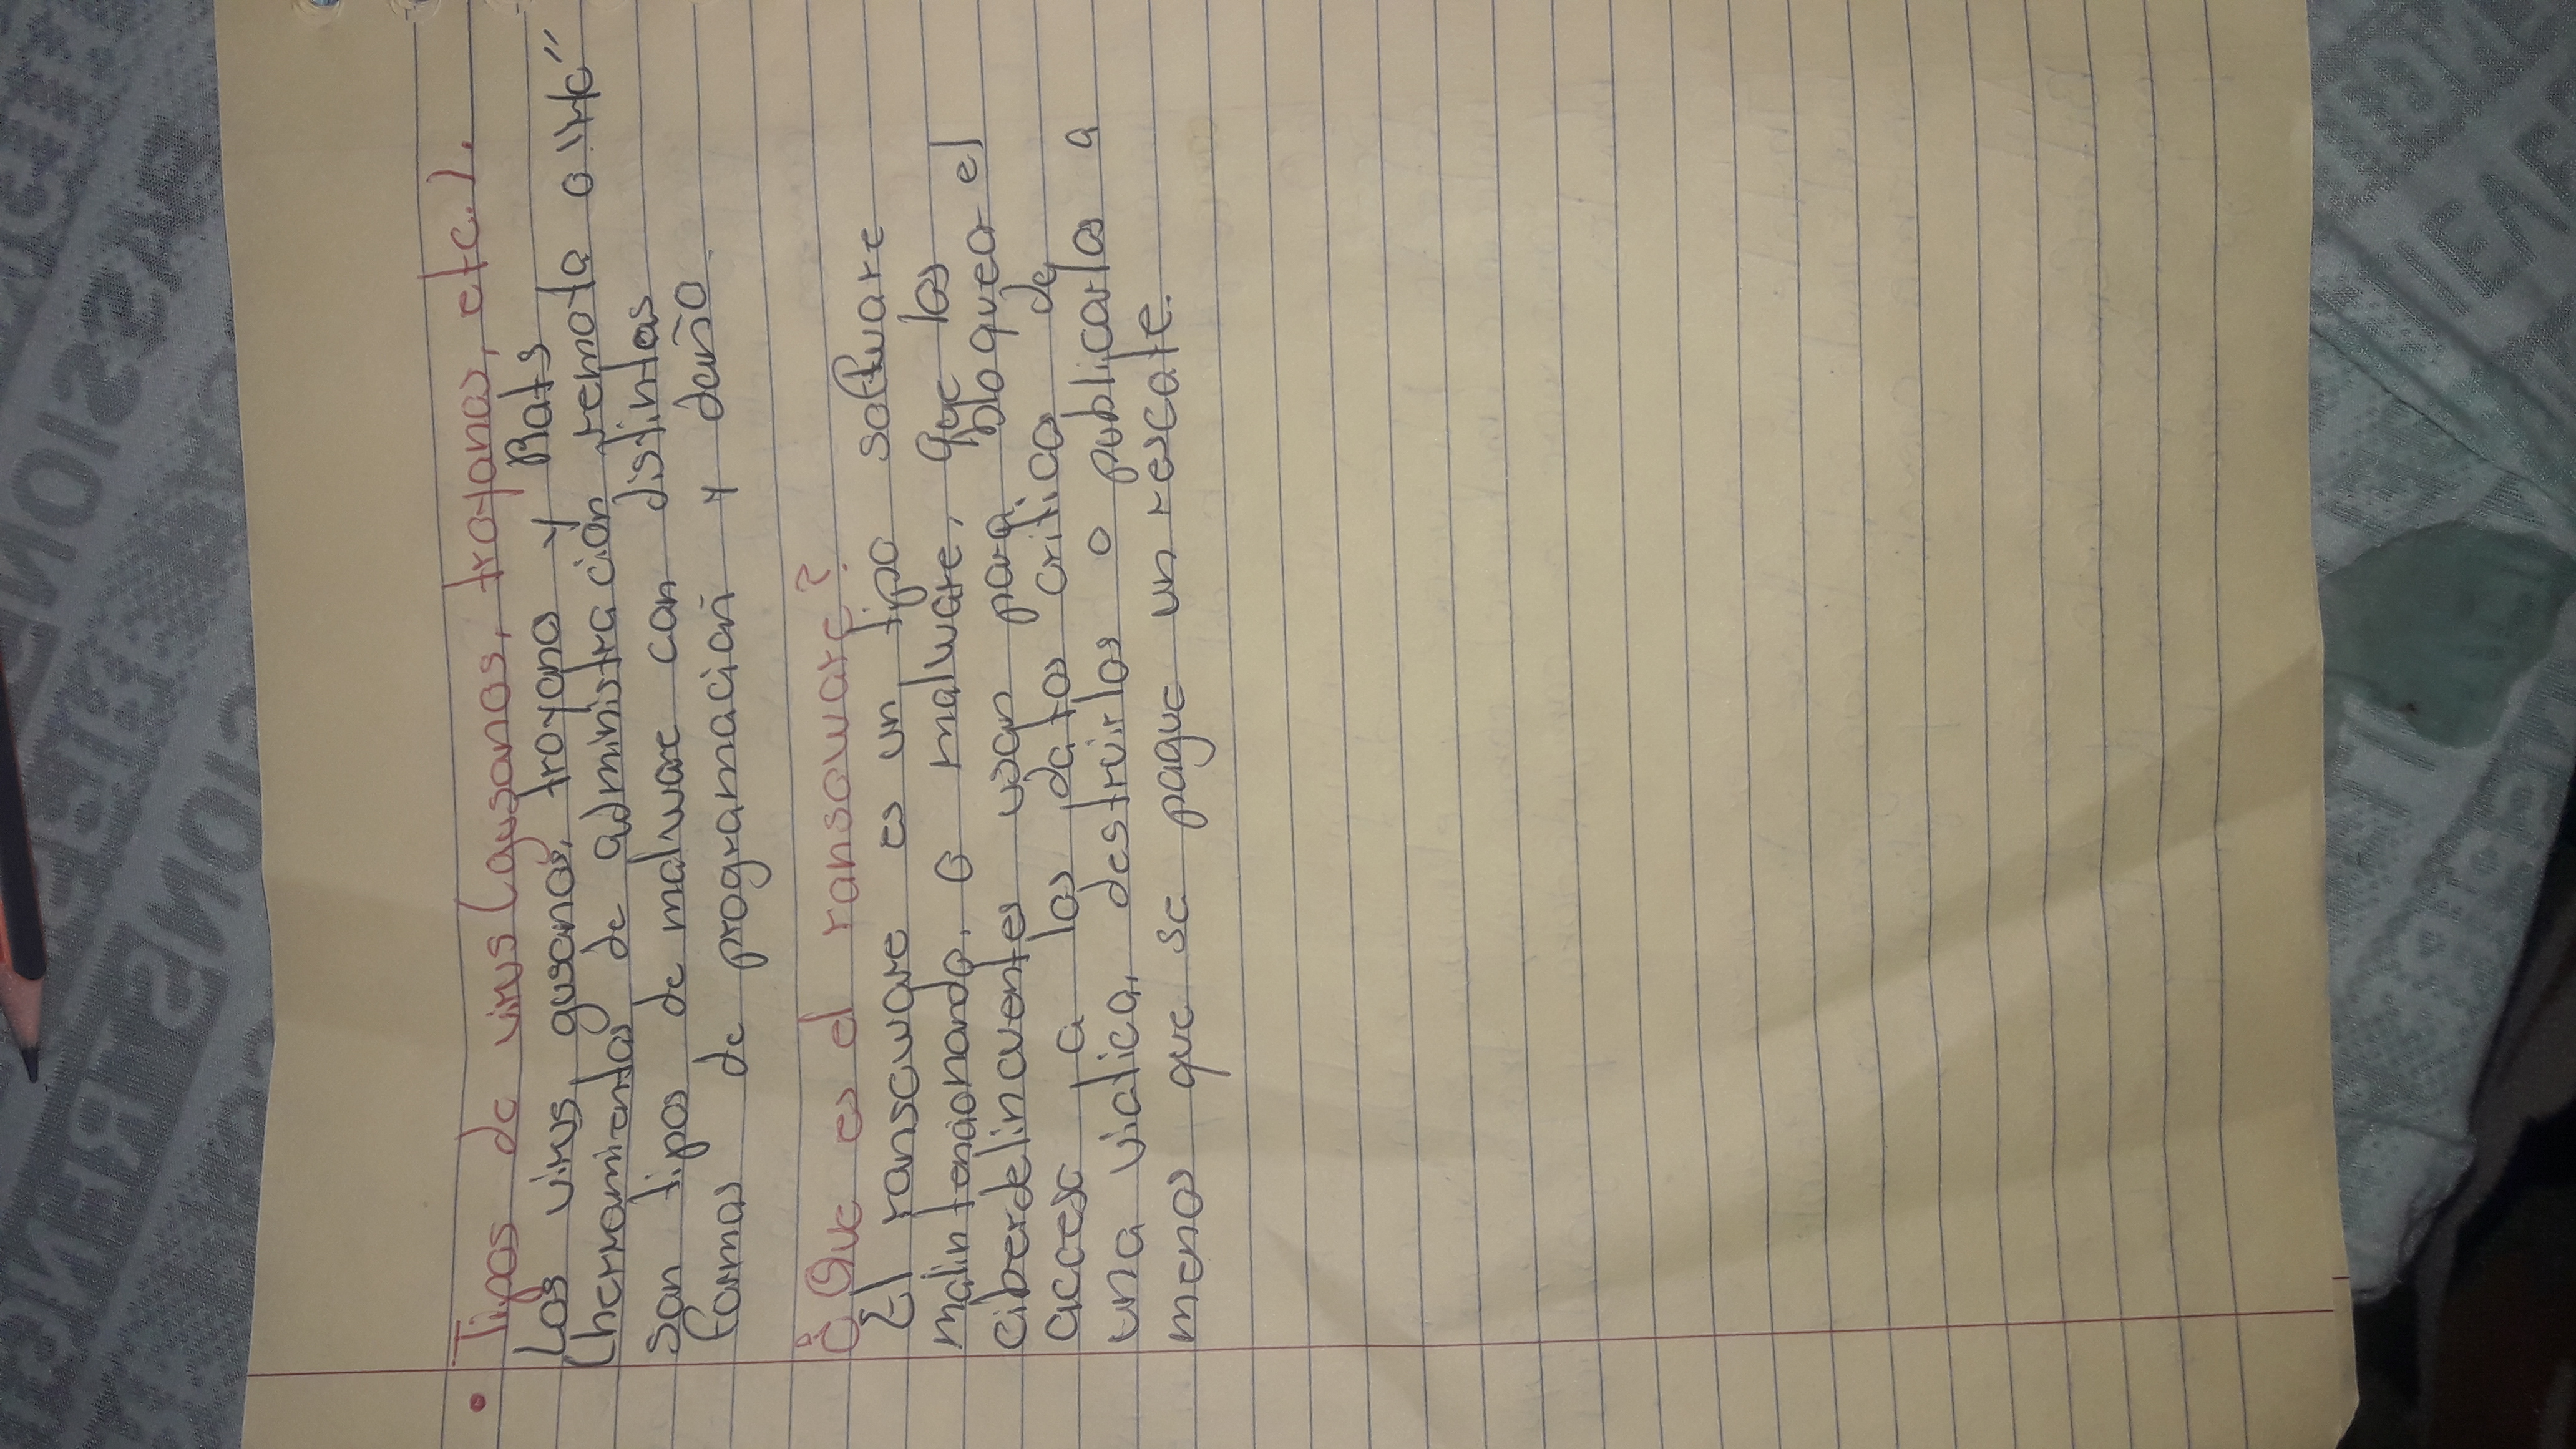 • Tipos de virus (gusanos, troyanos, etc.).
Los virus, gusanos, troyanos y Rats
(herramientas de administración remota o
son tipos de malware con distintas
formas de programación y daño.
¿Que es el ransowware?
El ransowware es un tipo software
malintencionando, o malware, que los
ciberdelincuentes usan para bloquear el
acceso a los datos critico de
una victica, destruirlos o publicarlos a
menos que se pague un rescate.